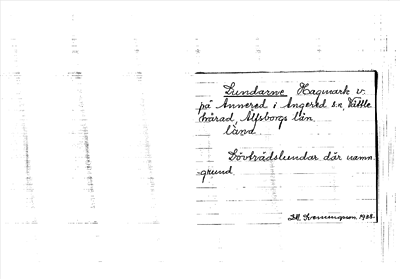 Lundarne Hagmark v.
på Annered i Angered s:n, Vättle
härad, Älfsborgs län.
länd
Lövträdslundar där namn
-grund
Henningson. 1925.